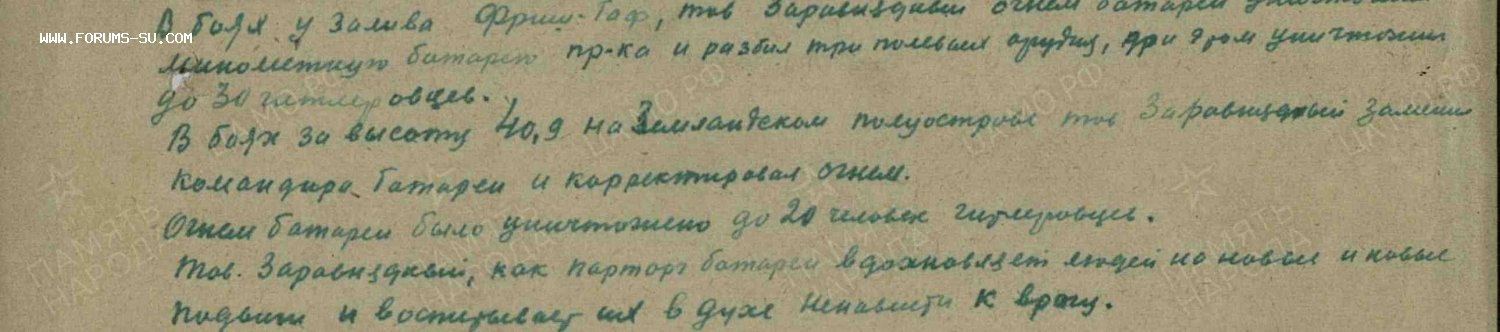 В боях у залива Фриш-Гаф, тов Заравняцкий огнем батареи
WWW.FORUMS-SU.COM
минометную батарею пр-ка и разбил три полевых орудия, при этом уничтожил
до 30 гитлеровцев.
В боях за высоту 40,9 на Земландском полуострове тов заменил
командира батареи и корректировал огнем.
Огнем батареи было уничтожено до 20 человек гитлеровцев.
Тов. как парторг батареи вдохновляет людей на новые и новые
подвиги и воспитывает их в духе ненависти к врагу.
ПАМЯТЬ НАРОДА
ЦАМО РФ